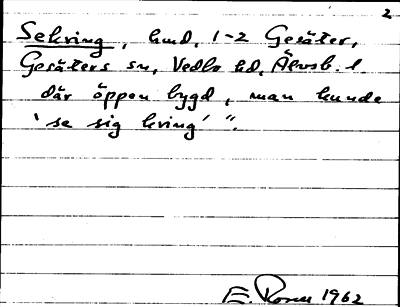 2
Sekring, hmd, 1-2 Gesäter,
Gesäters sn, Vedbo hd, Älvsb. l
där öppen bygd, man kunde
'se sig kring' ".
E. 1962